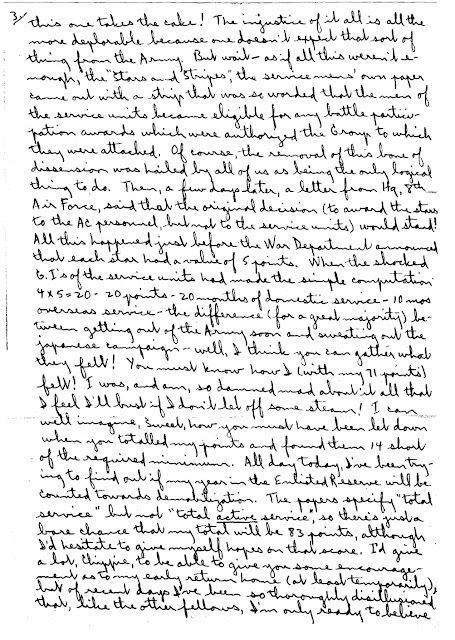 3/
this one takes the cake! The injustice of it all is all the
more deplorable because one doesn't expect that sort of
thing from the Army. But wait - as if all this weren't e-
nough, the "Stars and Stripes", the service mens' own paper
came out with a strip that was so worded that the men of
the service units became eligible for any battle partici-
pation awards which were authorized the Group to which
they were attached. Of course, the removal of this bone of
dissension was hailed by all of us as being the only logical
thing to do. Then, a few days later, a letter from Hq, 8th
Air Force, said that the original decision (to award the stars
to the AC personnel, but not to the service units) would stand!
All this happened just before the War Department announced
that each star had a value of 5 points. When the shocked
G.I's of the service units had made the simple computation
4 x 5 = 20 - 20 points - 20 months of domestic service - 10 mos
overseas service - the difference (for a great majority) be-
tween getting out of the Army soon and sweating out the
Japanese campaign - well, I think you can gather what
they felt! You must know how I (with my 71 points)
felt! I was, and am, so damned mad about it all that
I feel I'll bust if I don't let off some steam! I can
well imagine, Sweet, how you must have been let down
when you totalled my points and found them 14 short
of the required minimum. All day today, I've been try-
ing to find out if my year in the Enlisted Reserve will be
counted towards demobilization. The papers specify "total
service" but not "total active service", so there's just a
bare chance that my total will be 83 points, although
I'd hesitate to give myself hopes on that score. I'd give
a lot, Chippie, to be able to give you some encourage-
ment as to my early return home (at least temporarily),
but of recent days I've been so thoroughly disillusioned
that, like the other fellows, I'm only ready to believe